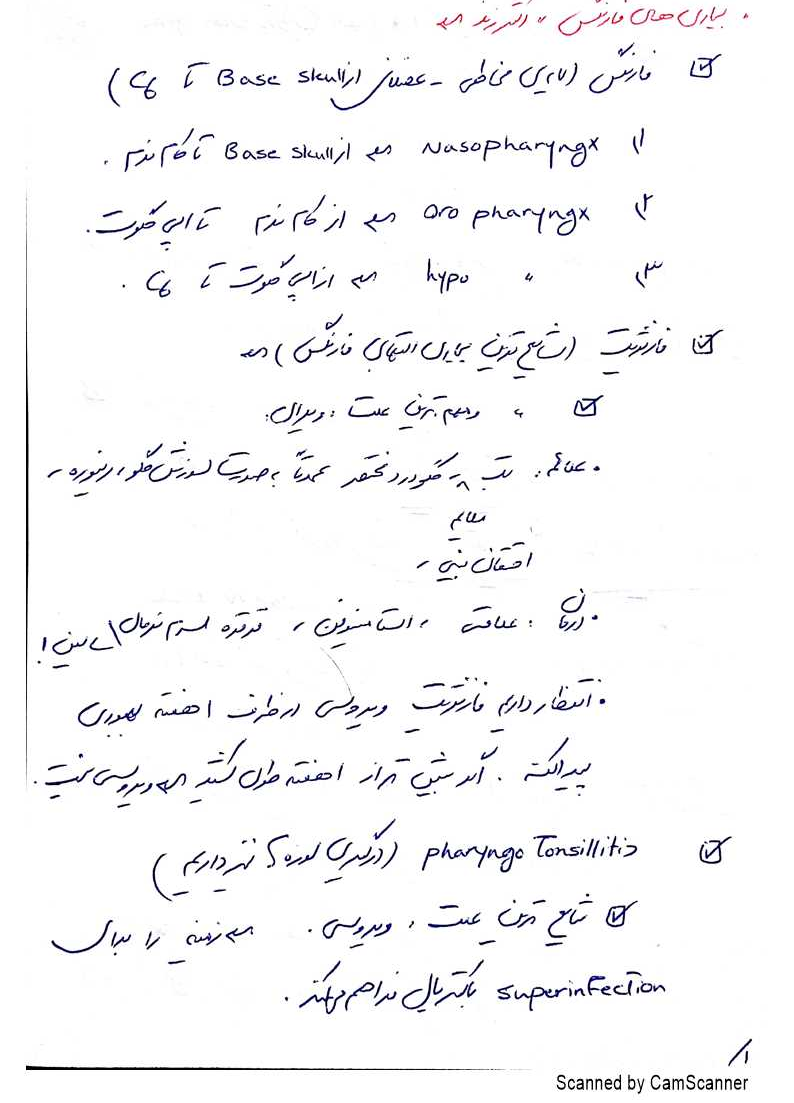 . بیماری های فارنکس ،
☑ فارنکس (لایه ی مخاطی - عضلانی از Base skull تا C6)
۱) Nasopharyngx از Base skull تا کام نرم .
۲) Oro pharyngx از کام نرم تا اپی گلوت .
۳) hypo " از اپی گلوت تا C6 .
☑ فارنژیت (شایع ترین بیماری التهابی فارنکس)
☑ " مهم ترین علت : ویرال :
. علائم : تب ، گلودرد مختصر عمدتاً به صورت سوزش گلو ، رینوره ،
ملایم
احتقان بینی ،
. درمان : علامتی ، استامینوفن ، غرغره سرم نرمال سالین !
. انتظار داریم فارنژیت ویروسی در ظرف ۱ هفته بهبودی
پیدا کنه . اگر بیش تر از ۱ هفته طول کشید ویروسی نیست .
☑ pharyngo Tonsillitis (درگیری لوزه نیز داریم)
☑ شایع ترین علت : ویروسی . زمینه را برای
superinfection باکتریال فراهم میکند .
۱/
Scanned by CamScanner